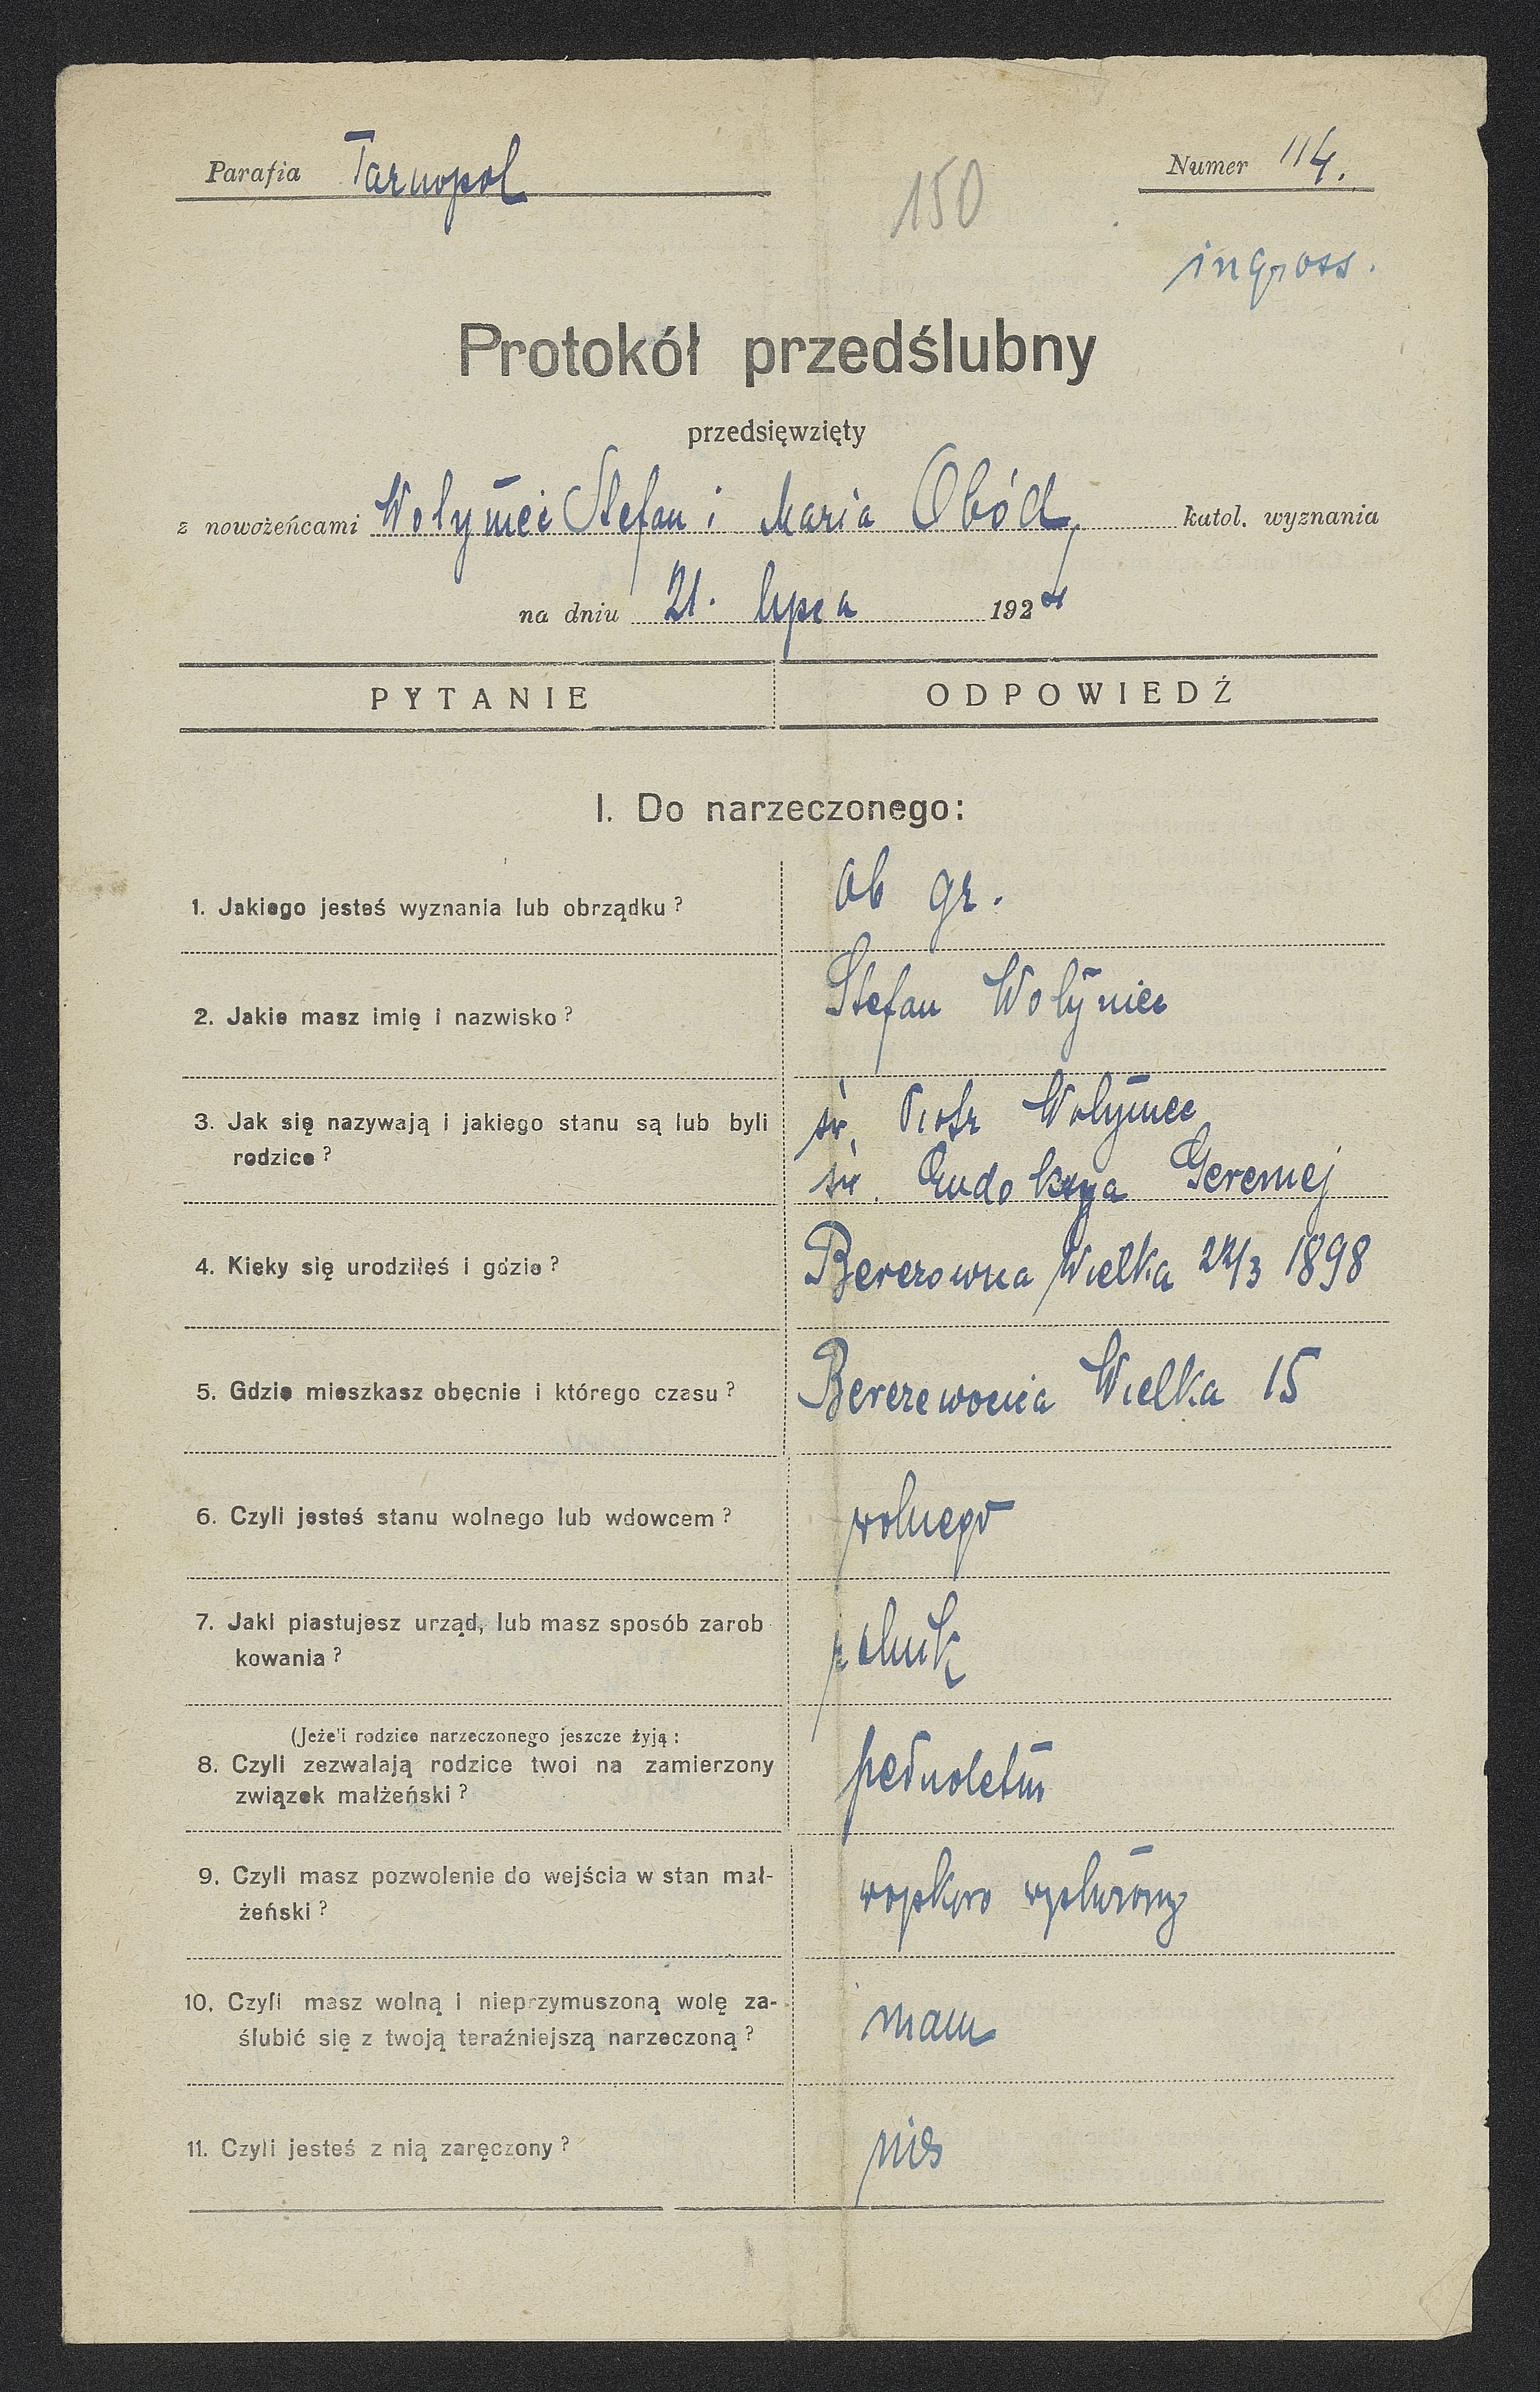 Parafia Tarnopol
Numer 114.
150
ingross.
Protokół przedślubny
przedsięwzięty
z nowożeńcami Wołyniec Stefan i Maria Obód katol. wyznania
na dniu 21. lipca 192
PYTANIE ODPOWIEDŹ
I. Do narzeczonego:
1. Jakiego jesteś wyznania lub obrządku? ob gr.
2. Jakie masz imię i nazwisko? Stefan Wołyniec
3. Jak się nazywają i jakiego stanu są lub byli rodzice? śp. Piotr Wołyniec
śp. Eudokya Geremej
4. Kieky się urodziłeś i gdzie? Berezowica Wielka 1898
5. Gdzie mieszkasz obecnie i którego czasu? Berezowica Wielka 15
6. Czyli jesteś stanu wolnego lub wdowcem? wolnego
7. Jaki piastujesz urząd, lub masz sposób zarob
kowania? rolnik
(Jeżeli rodzice narzeczonego jeszcze żyją:
8. Czyli zezwalają rodzice twoi na zamierzony
związek małżeński? pełnoletni
9. Czyli masz pozwolenie do wejścia w stan mał-
żeński? wojskowo wysłużony
10. Czyli masz wolną i nieprzymuszoną wolę za-
ślubić się z twoją teraźniejszą narzeczoną? mam
11. Czyli jesteś z nią zaręczony? nie